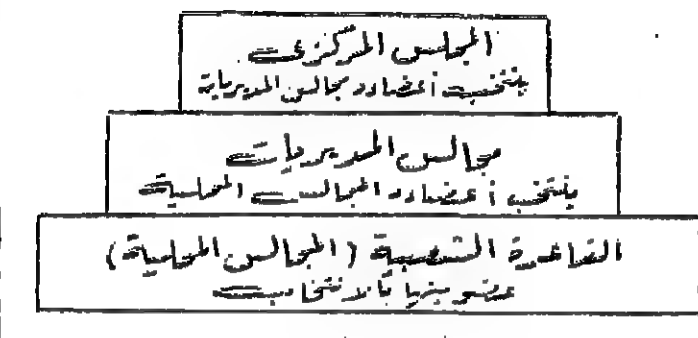 المجلس المركزى
ينتخب أعضاءه مجالس المديريات
مجالس المديريات
ينتخب أعضاءه المجالس المحلية
القاعدة الشعبية (المجالس المحلية)
عضويتها بالانتخاب